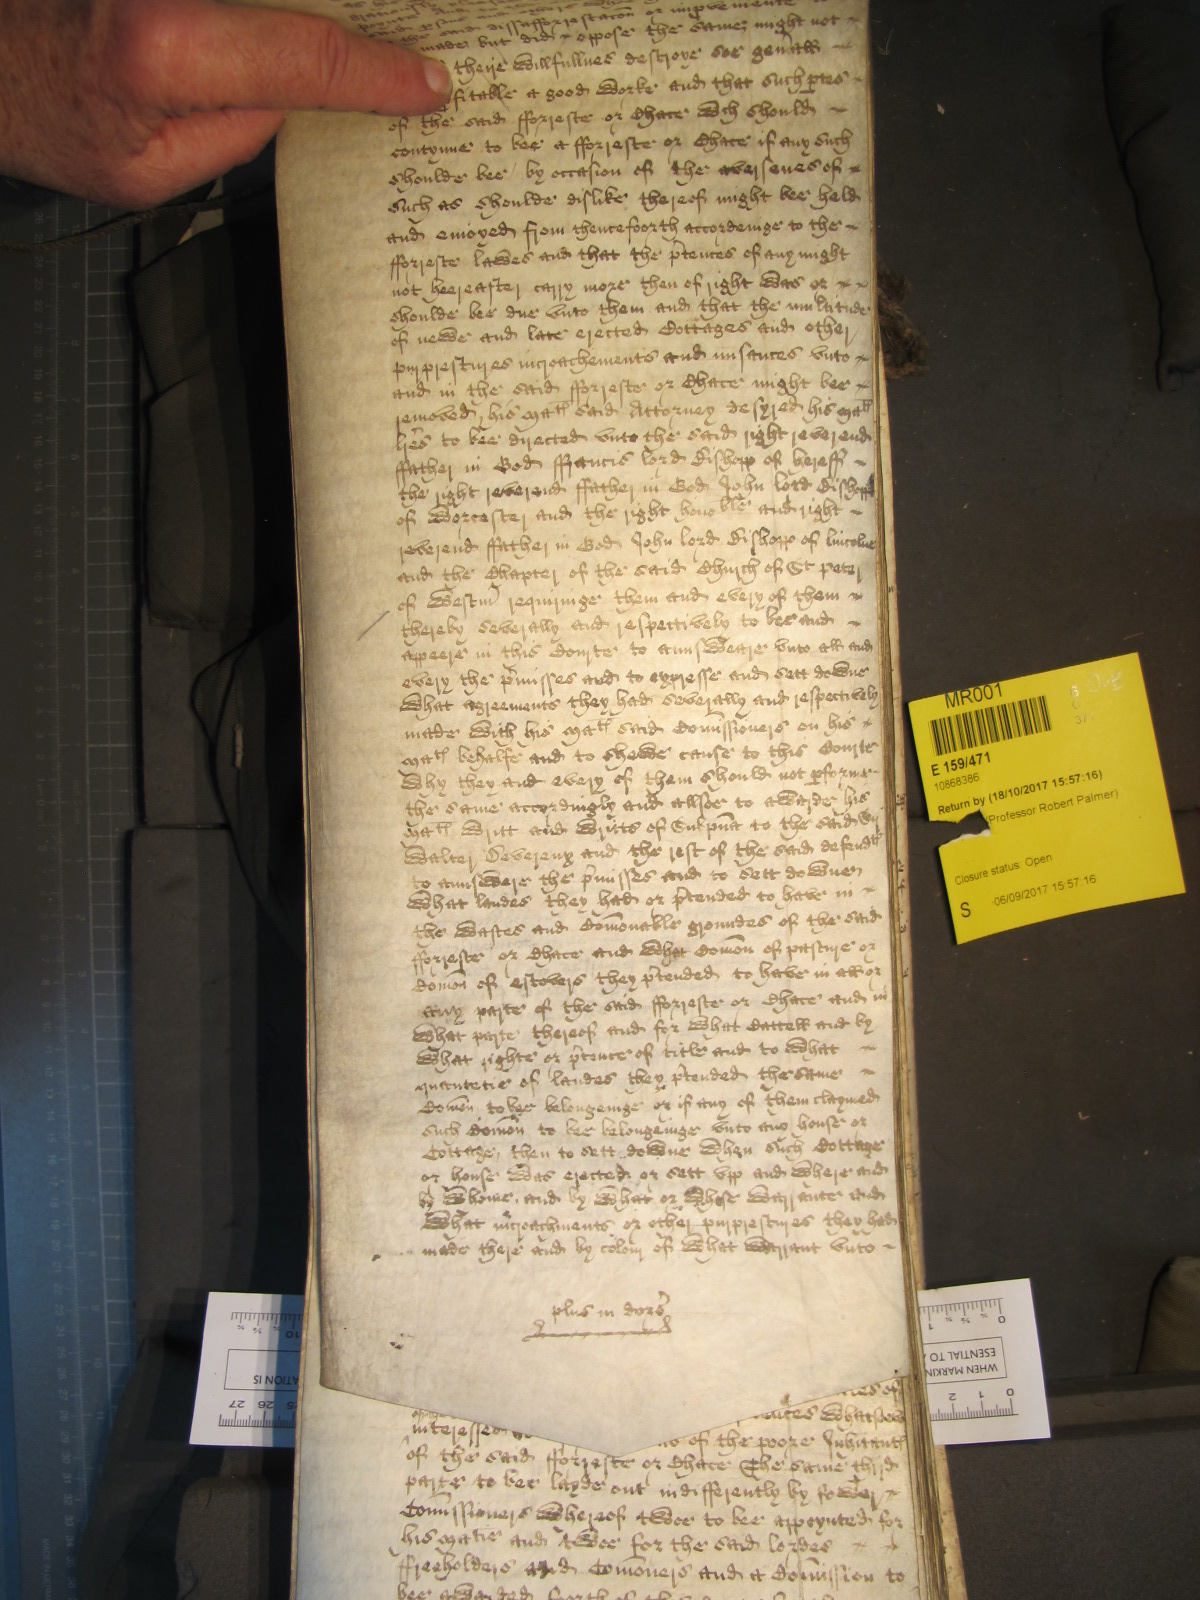 the said disafforrestacon or improvemente
made but did oppose the same might not
theire willfullnes destroye soe generall
fitable a good worke and that such ptes
of the said fforreste or Chace wch should
contynue to bee a fforreste or Chace if any such
shoulde bee by occasion of the aversenes of
such as shoulde dislike thereof might bee held
and enioyed from thenceforth accordeinge to the
fforreste lawes and that the ptences of any might
not hereafter carry more then of right was or
shoulde bee due unto them and that the multitude
of newe and late erected Cottages and other
purprestures incroachements and nusances unto
and in the said fforreste or Chace might bee
removed, his matis said Attorney desyred his matis
lres to bee directed unto the said right reverend
ffather in God ffrancis lord Bishopp of hereff
the right reverend ffather in God John lord Bishopp
of Worcester and the right honoble and right
reverend ffather in God John lord Bishopp of lincolne
and the Chapter of the said Church of St Peter
of Westm requiringe them and every of them
thereby severally and respectively to bee and
appeere in this Courte to aunsweare unto all and
every the pmisses and to expresse and sett downe
what agreements they had severally and respectively
made with his matis said Comissioners on his
matis behalfe and to shewe cause to this Courte
why they and every of them should not pforme
the same accordingly and allsoe to awarde his
matis writt and writts of Subpena to the said Sr
Walter Devereux and the rest of the said defendts
to aunswere the pmisses and to sett downe
what landes they had or ptended to have in
the wastes and Comonable groundes of the said
fforreste or Chace and what Comon of pasture or
Comon of estovers they ptended to have in all or
any parte of the said fforreste or Chace and in
what parte thereof and for what Cattell and by
what righte or ptence of title and to what
quantetie of landes they ptended the same
Comon to bee belongeinge or if any of them claymed
such Comon to bee belongeinge unto any house or
Cottage, then to sett downe when such Cottage
or house was erected or sett upp and where and
by whome, and by what or whose warrante and
what incroachments or other purprestures they had
made there and by colour of what warrant unto
plus in dors
MR001
E 159/471
10868386
Return by (18/10/2017 15:57:16)
Professor Robert Palmer)
Closure status: Open
S 06/09/2017 15:57:16
whatsoev
interesse
of the poore Inhitants
of the said fforreste or Chace The same third
parte to bee layde out indifferently by fower
Comissioners whereof twoe to bee appoynted for
his matie and twoe for the said lordes
ffreeholders and Comoners and a Comission to
bee awarded foorth of the
WHEN MARKIN
ESENTIAL TO
ATION IS